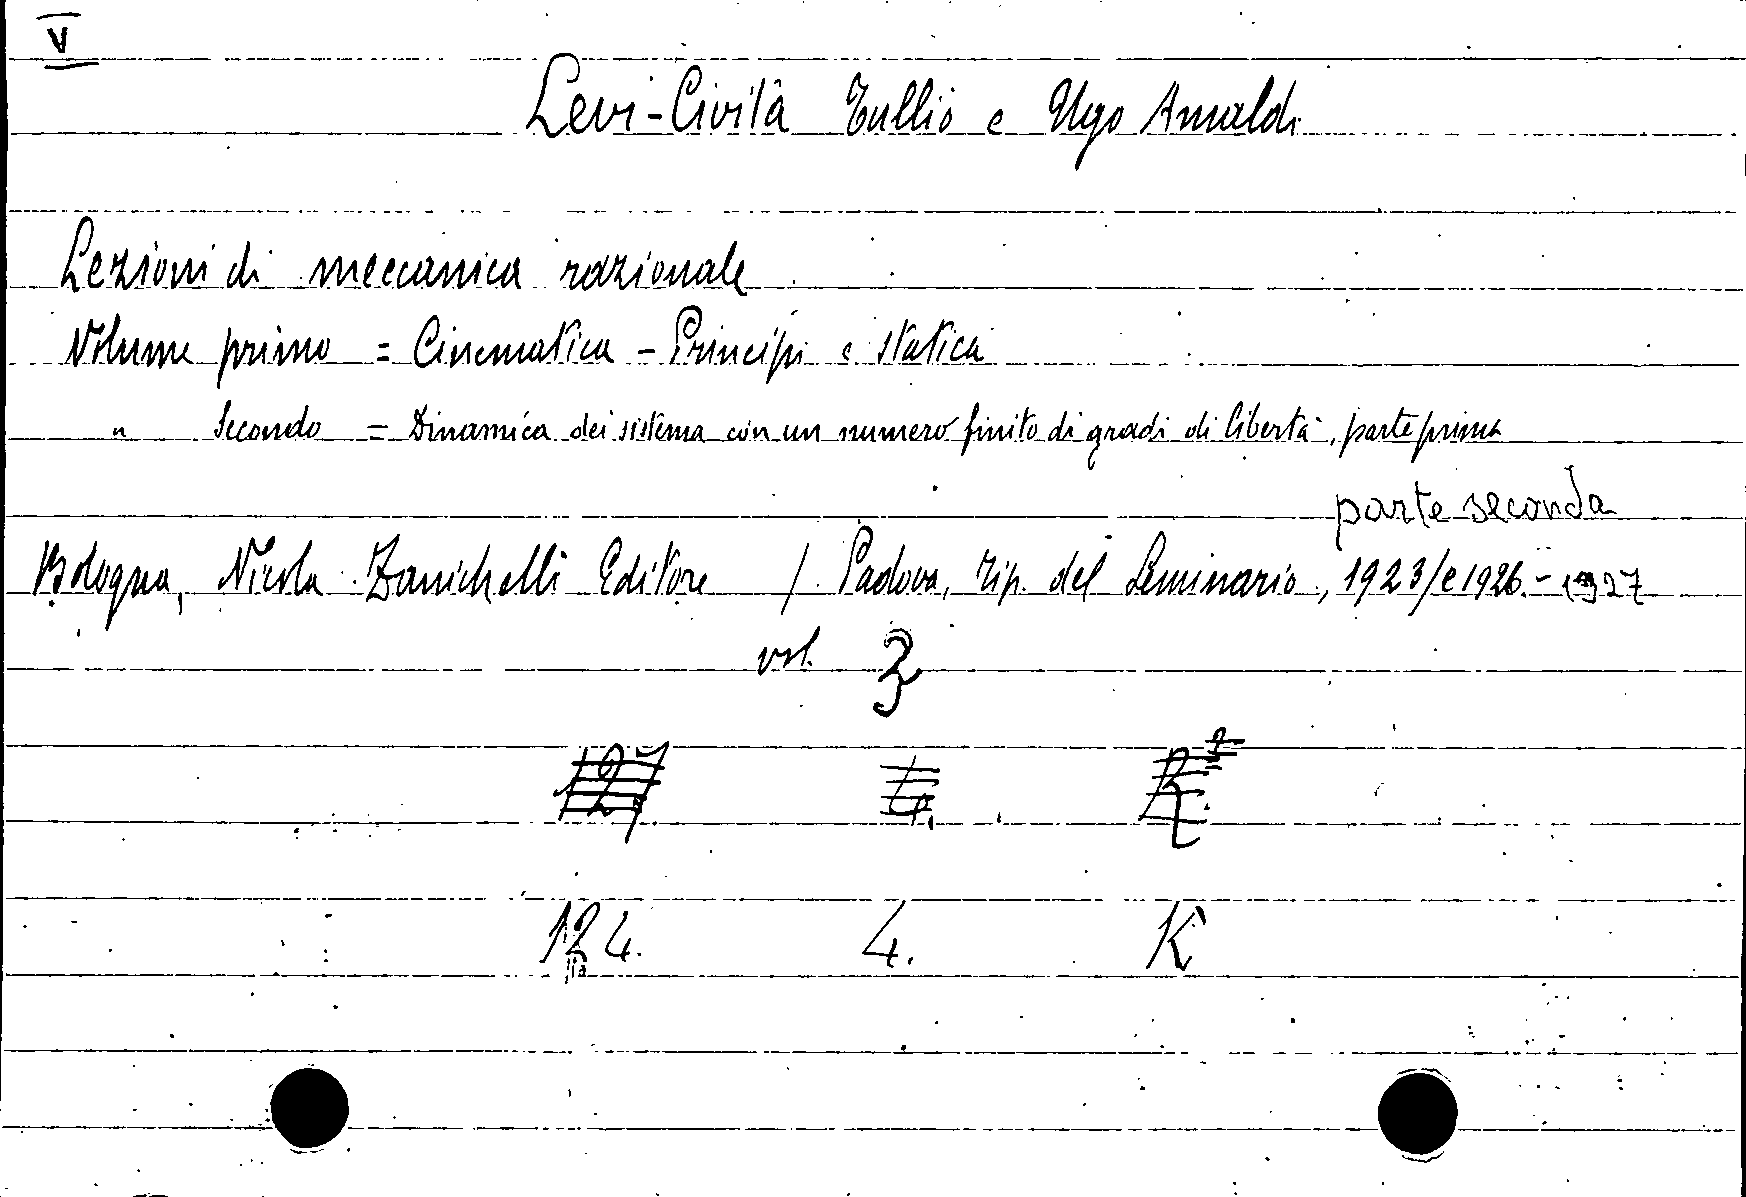 V
Levi-Civita Tullio e Ugo Amaldi
Lezioni di meccanica razionale
Volume primo = Cinematica - Principi e statica
" Secondo = Dinamica dei sistema con un numero finito di gradi di libertà, parte prima
parte seconda
Bologna, Nicola Zanichelli Editore / Padova, Tip. del Seminario, 1923/e 1926.-1927
vol. 3
124. 4. K